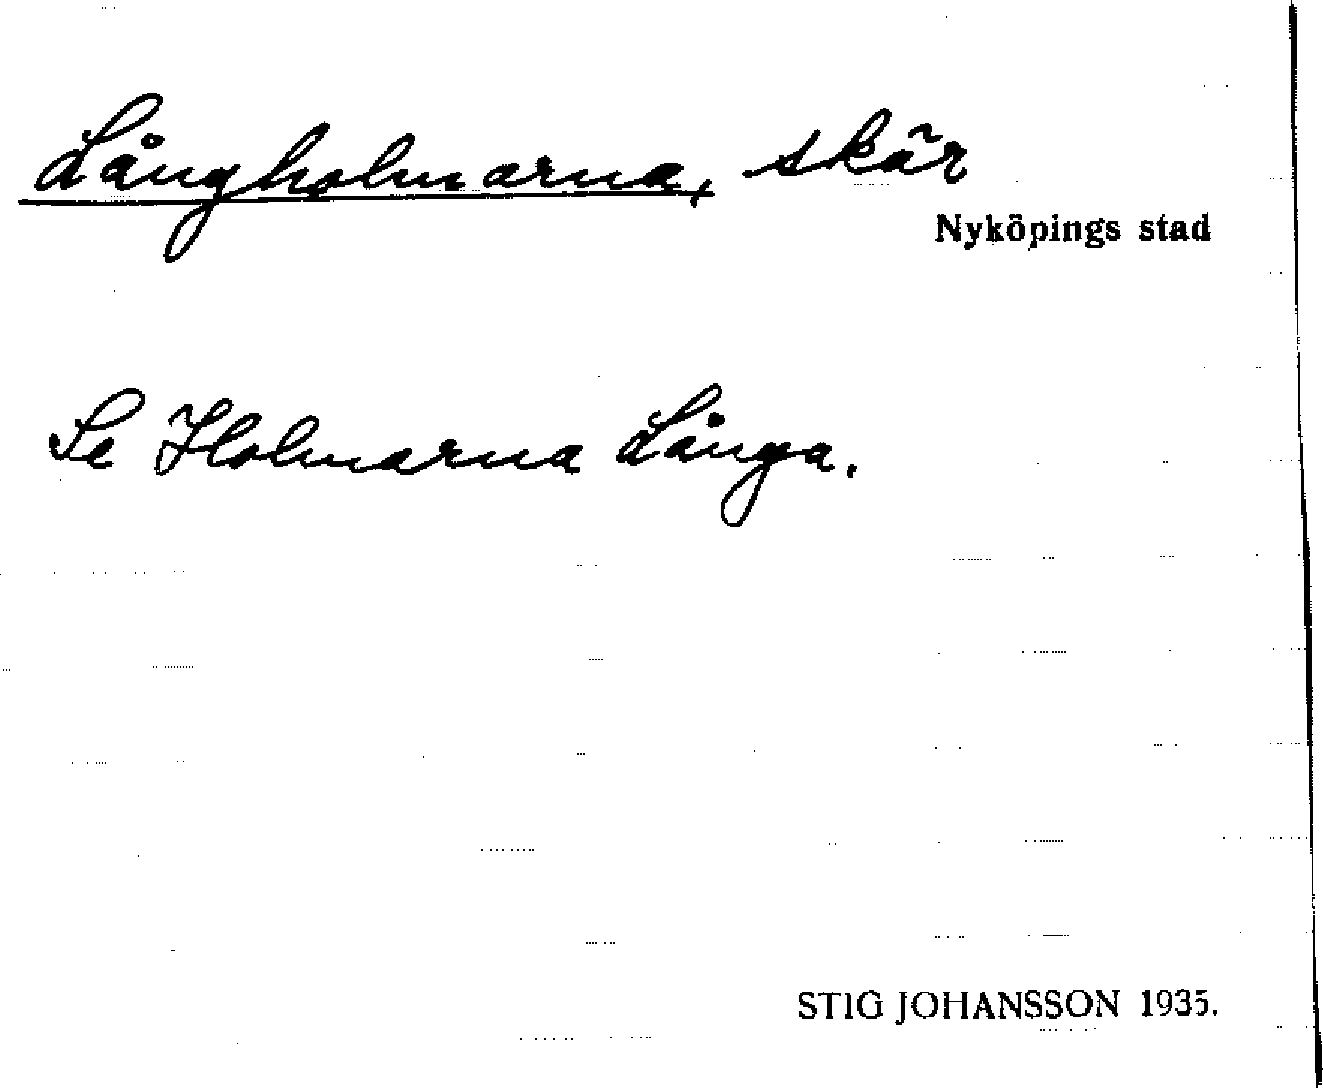 Långholmarna, skär
Nyköpings stad
Se Holmarna Långa.
STIG JOHANSSON 1935.